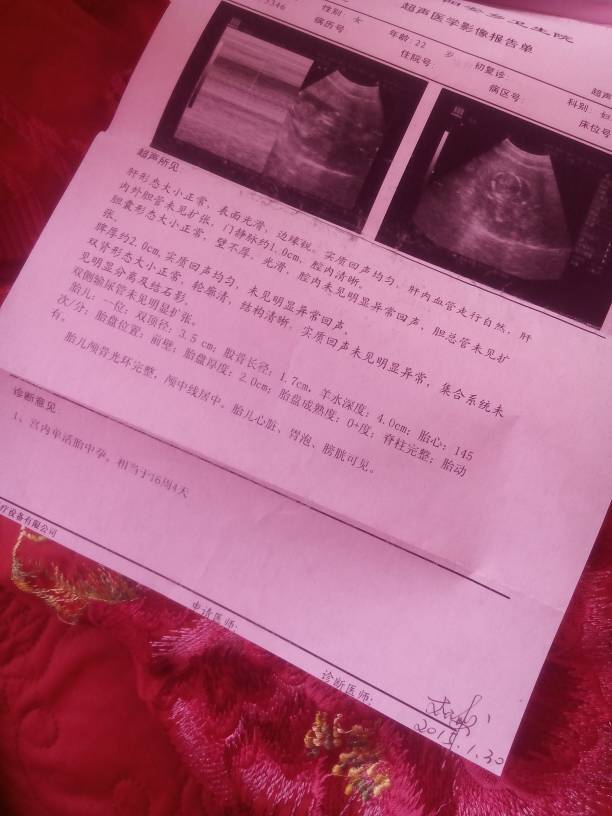 乡卫生院
超声医学影像报告单
5346
性别: 女
年龄: 22 岁
初复诊:
病历号:
住院号:
病区号:
科别:
床位号
超声所见:
肝形态大小正常, 表面光滑, 边缘锐。实质回声均匀, 肝内血管走行自然, 肝
内外胆管未见扩张, 门静脉约1.0cm, 腔内清晰。
胆囊形态大小正常, 壁不厚, 光滑, 腔内未见明显异常回声, 胆总管未见扩
张。
脾厚约2.0cm, 实质回声均匀, 未见明显异常回声。
双肾形态大小正常, 轮廓清, 结构清晰, 实质回声未见明显异常, 集合系统未
见明显分离及结石影。
双侧输尿管未见明显扩张。
胎儿: 一位; 双顶径: 3.5 cm; 股骨长径: 1.7cm。羊水深度: 4.0cm; 胎心: 145
次/分; 胎盘位置: 前壁; 胎盘厚度: 2.0cm; 胎盘成熟度: 0+度; 脊柱完整; 胎动
有。
胎儿颅骨光环完整, 颅中线居中。胎儿心脏、胃泡、膀胱可见。
诊断意见
1、宫内单活胎中孕, 相当于16周4天
疗设备有限公司
申请医师:
诊断医师:
2015.1.30